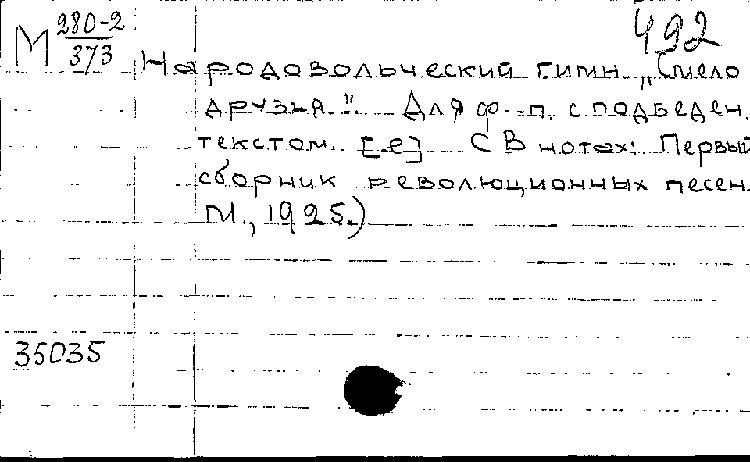 М 280-2/373
492
Народовольческий гимн „Смело
друзья". Для ф-п. с подведен.
текстом. [e] (В нотах: Первый
сборник революционных песен.
М., 1925.)
35035